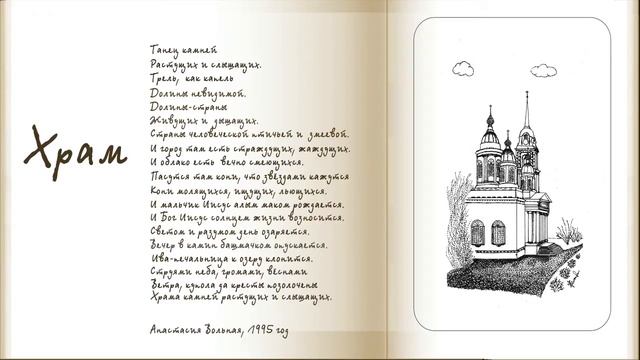 Храм
Танец камней
Растущих и слышащих.
Трель, как капель
Долины невидимой.
Долины-страны
Живущих и дышащих.
Страны человеческой птичьей и змеевой.
И город там есть страждущих, жаждущих.
И облако есть вечно смеющихся.
Пасутся там кони, что звёздами кажутся
Кони молящихся, ищущих, льющихся.
И мальчик Иисус алым маком рождается.
И Бог Иисус солнцем жизни возносится.
Светом и разумом день озаряется.
Вечер в камин башмачком опускается.
Ива-печальница к озеру клонится.
Струями неба, громами, вёснами
Ветра, купола да кресты позолочены
Храма камней растущих и слышащих.
Анастасия Вольная, 1995 год